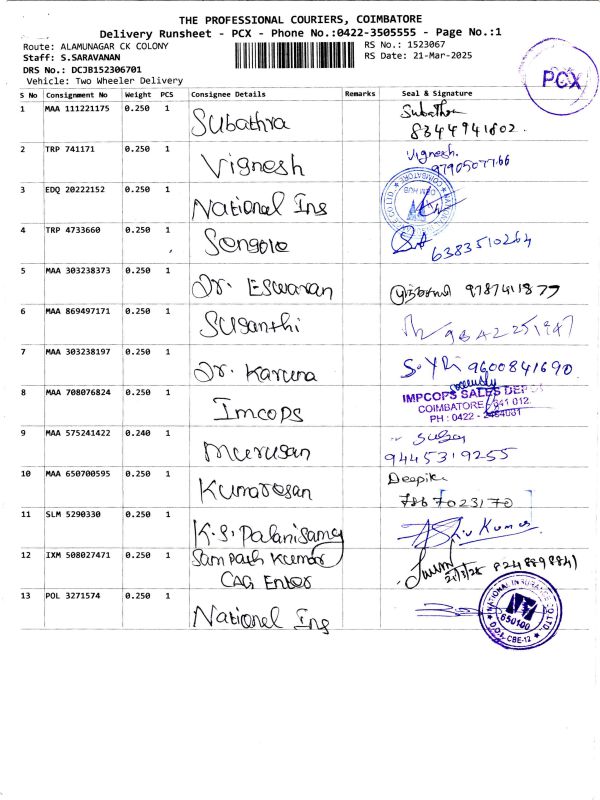 THE PROFESSIONAL COURIERS, COIMBATORE
Delivery Runsheet - PCX - Phone No.:0422-3505555 - Page No.:1
Route: ALAMUNAGAR CK COLONY
RS No.: 1523067
Staff: S.SARAVANAN
RS Date: 21-Mar-2025
DRS No.: DCJB152306701
Vehicle: Two Wheeler Delivery
PCX
S No Consignment No Weight PCS Consignee Details Remarks Seal & Signature
1 MAA 111221175 0.250 1 Subathra Subathra
8344941802.
2 TRP 741171 0.250 1 Vignesh Vignesh.
9790507766
3 EDQ 20222152 0.250 1 National Ins
4 TRP 4733660 0.250 1 6383510264
5 MAA 303238373 0.250 1 Dr. Eswaran 9787411877
6 MAA 869497171 0.250 1 Susanthi 9842251947
7 MAA 303238197 0.250 1 Dr. Karuna 9600841690.
8 MAA 708076824 0.250 1 Imcops IMPCOPS SALES DEPOT
COIMBATORE - 641 012.
PH : 0422 -
9 MAA 575241422 0.240 1 Murusan
9445319255
10 MAA 650700595 0.250 1 Kumaresan Deepika
7867023170
11 SLM 5290330 0.250 1 K.S. Palanisamy Siv Kumar
12 IXM 508027471 0.250 1 Sampath Kumar 8248898841
CAG Enter 21/3/25
13 POL 3271574 0.250 1 National Ins NATIONAL INSURANCE CO. LTD.
650100
D.O.I. CBE-12